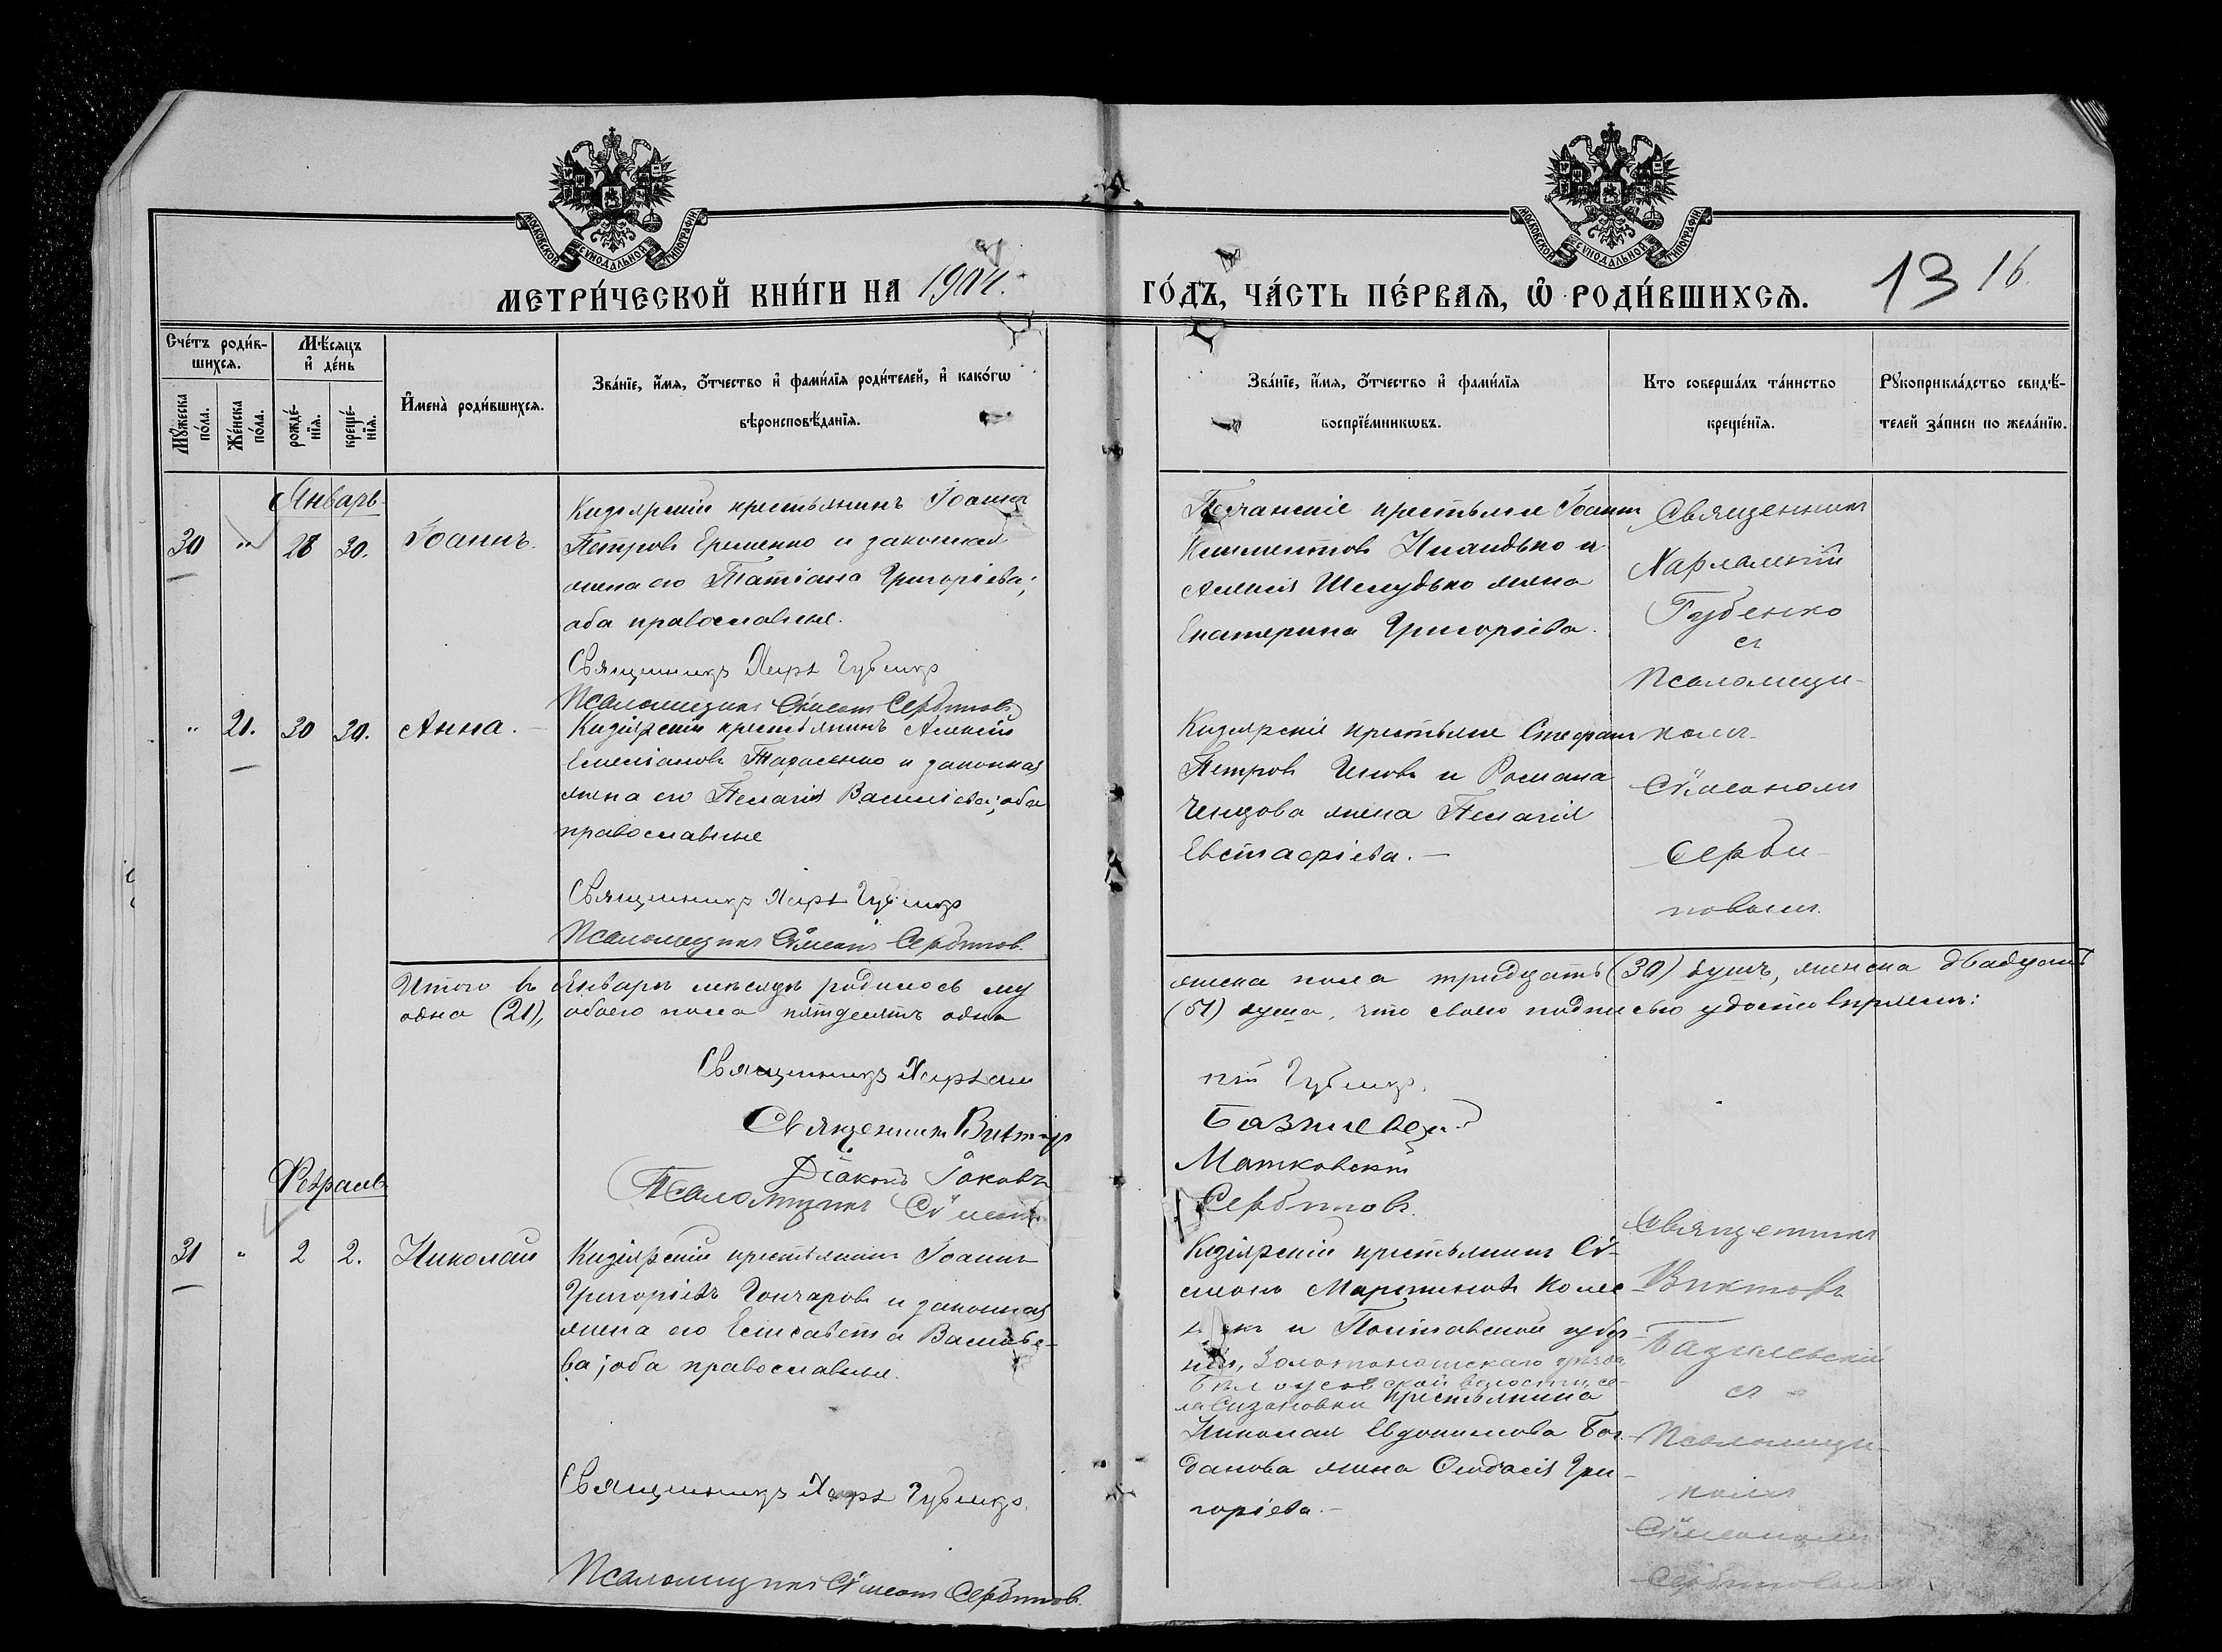 МОСКОВСКОЙ СѴНОДАЛЬНОЙ ТИПОГРАФІИ
МОСКОВСКОЙ СѴНОДАЛЬНОЙ ТИПОГРАФІИ
МЕТРИ́ЧЕСКОЙ КНИ́ГИ НА 1904.
ГО́ДЪ, ЧА́СТЬ ПЕ́РВАѦ, Ѡ҆ РОДИ́ВШИХСѦ.
13 16.
Сче́тъ роди́в-
шихсѧ.
Мꙋ́жеска по́ла.
Же́нска по́ла.
Мѣ́сѧцъ
и҆ де́нь
рожде́-
нїѧ.
креще́-
нїѧ.
И҆мена̀ роди́вшихсѧ.
Зва́нїе, и҆́мѧ, ѻ҆́тчество и҆ фами́лїѧ роди́телей, и҆ како́гѡ
вѣроисповѣ́данїѧ.
Зва́нїе, и҆́мѧ, ѻ҆́тчество и҆ фами́лїѧ
воспрїе́мникѡвъ.
Кто соверша́лъ та́инство
креще́нїѧ.
Рꙋкоприкла́дство свидѣ́-
телей за́писи по жела́нїю.
Январь
30 " 28 30. Іоаннъ.
Кизіярскій крестьянинъ Іоаннъ
Петровъ Еременко и законная
жена его Татіана Григоріева;
оба православные.
Священникъ Харл. Губенко
Псаломщикъ Сѵмеонъ Сербиновъ
Песчанскіе крестьяне Іоаннъ
Климентовъ и
Алексія Шелудько жена
Екатерина Григоріева.
Священникъ
Харлампій
Губенко
съ
Псаломщи-
" 21. 30 30. Анна.
Кизіярскій крестьянинъ Алексій
Емеліановъ Тарасенко и законная
жена его Пелагія Василіева; оба
православные
Священникъ Харл. Губенко
Псаломщикъ Сѵмеонъ Сербиновъ.
Кизіярскіе крестьяне Стефанъ
Петровъ и Романа
жена Пелагія
Евстафіева.
комъ
Сѵмеономъ
Серби-
новымъ.
Итого въ Январѣ мѣсяцѣ родилось му
жеска пола тридцать (30) душъ, женска двадцать
одна (21), обоего пола пятдесятъ одна
(51) душа, что своею подписью удостовѣряемъ:
Священникъ Харлам
пій Губенко.
Священникъ Викторъ
Базилевскій
Діаконъ Іаковъ
Матковскій
Псаломщикъ Сѵмеонъ
Сербиновъ.
Февраль
31 " 2 2. Николай
Кизіярскій крестьянинъ Іоаннъ
Григорьевъ Гончаровъ и законная
жена его Елисавета Василье-
ва; оба православные.
Священникъ Харл. Губенко.
Псаломщикъ Сѵмеонъ Сербиновъ.
Кизіярскій крестьянинъ Сѵ-
меонъ Мартиновъ
и Полтавской губер-
ніи, Золотоношскаго уѣзда
Бѣлоусовской волости, се-
ла Сизоновки крестьянина
Николая Евдокимова Бог-
данова жена Гри-
горіева.
Священникъ
Викторъ
Базилевскій
съ
Псаломщи-
комъ
Сѵмеономъ
Сербиновымъ